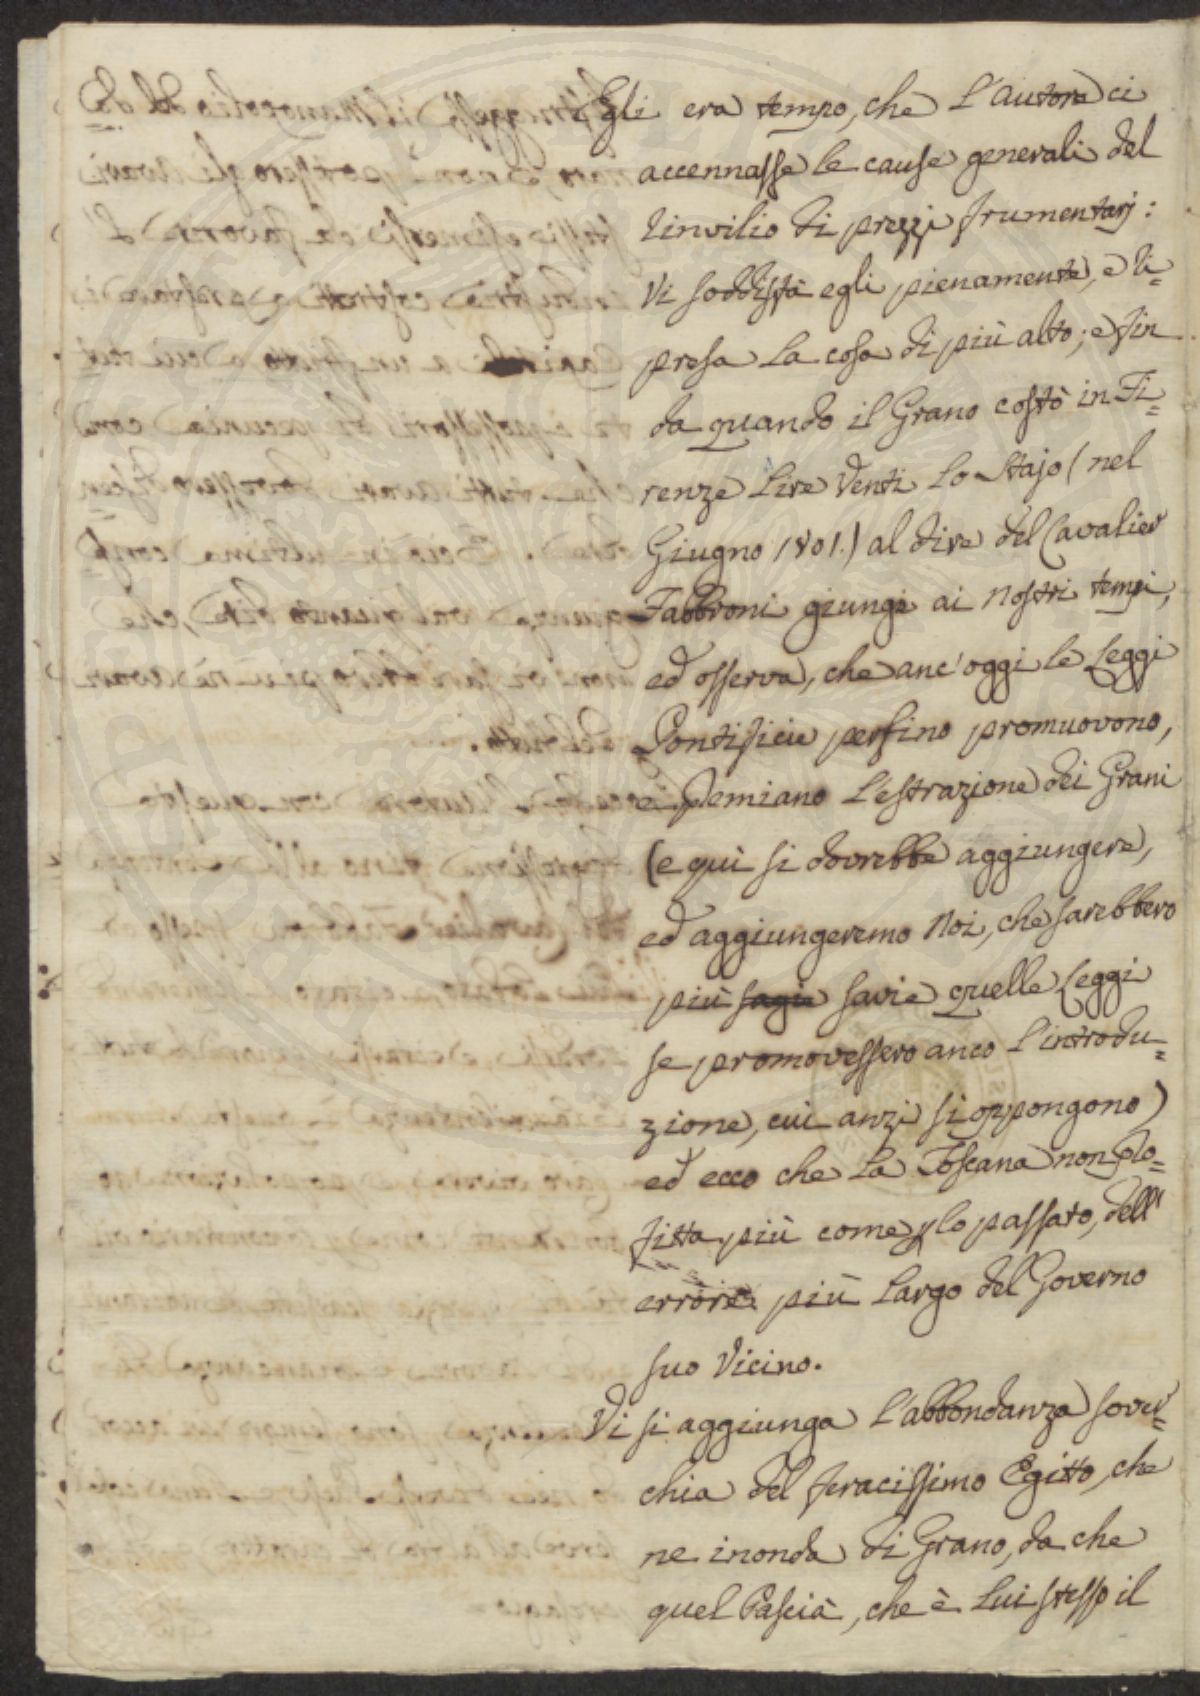 Egli era tempo, che l'autore ci
accennasse le cause generali del
rinvilio di prezzi frumentarj:
Vi soddisfà egli pienamente, e ri=
presa la cosa di più alto; e fin
da quando il Grano costò in Fi=
renze Lire Venti lo Stajo (nel
Giugno 1801.) al dire del Cavalier
Fabbroni giunge ai nostri tempi,
ed osserva, che anc' oggi le Leggi
Pontificie perfino promuovono,
e Premiano l'estrazione dei Grani
(e quì si dovrebbe aggiungere,
ed aggiungeremo Noi, che sarebbero
più sagie savie quelle Leggi
se promovessero anco l'introdu=
zione, cui anzi si oppongono)
ed ecco che la Toscana non pro=
fitta più come lo passato, dell'
errore più largo del Governo
suo Vicino.
Vi si aggiunga l'abbondanza sover=
chia del feracissimo Egitto, che
ne inonda di Grano, da che
quel Pascià, che è lui stesso il